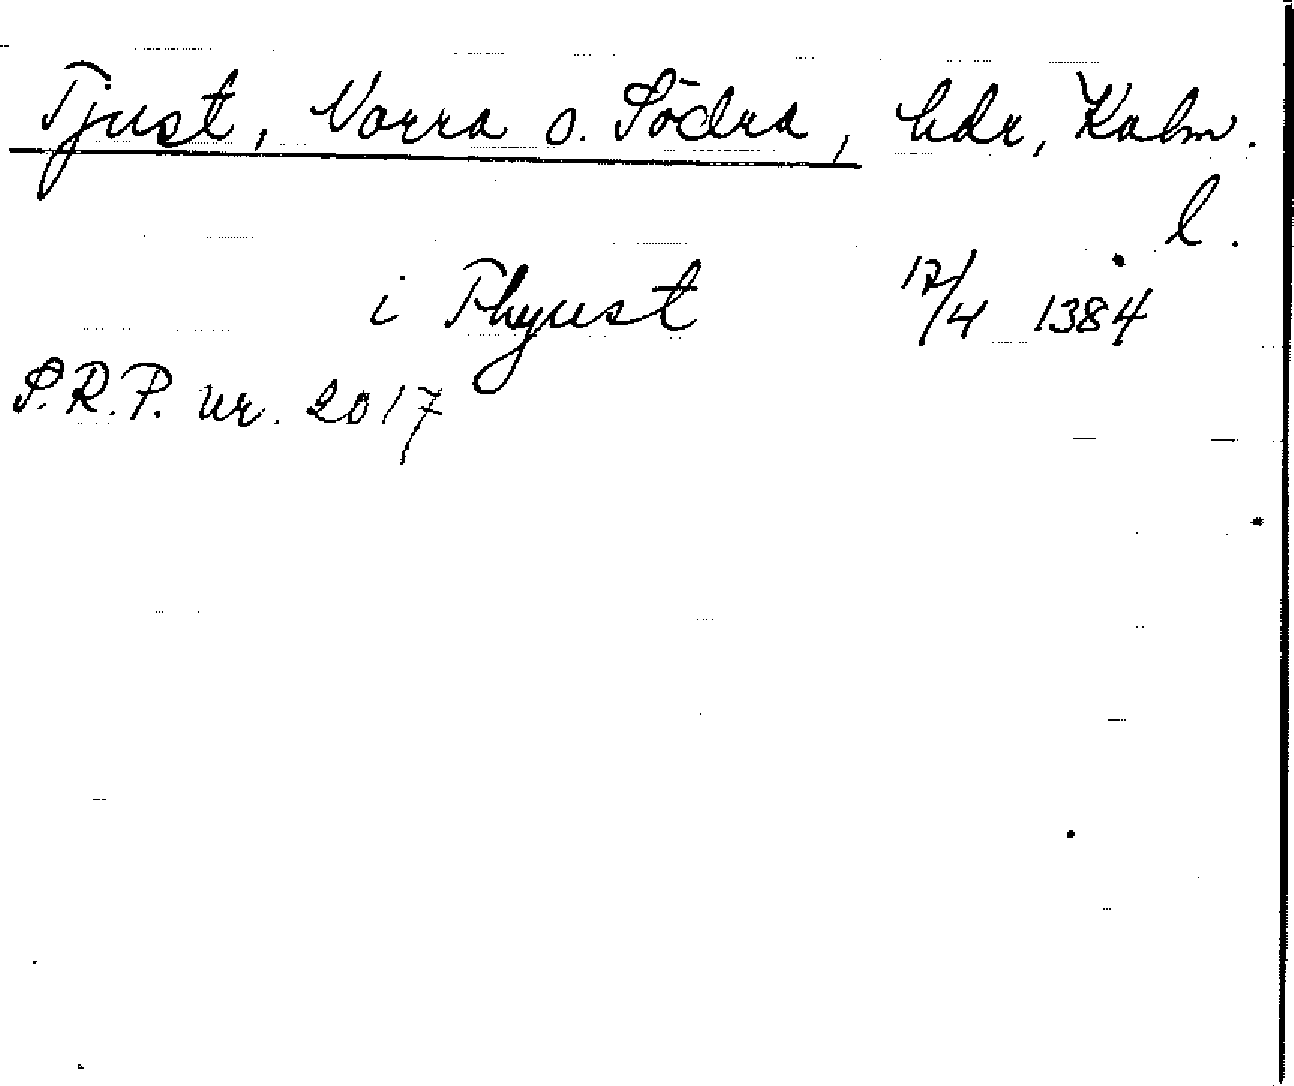 Tjust, Norra o. Södra, hdr, Kalm.
l.
i Thyust 17/4 1384
S.R.P. nr. 2017